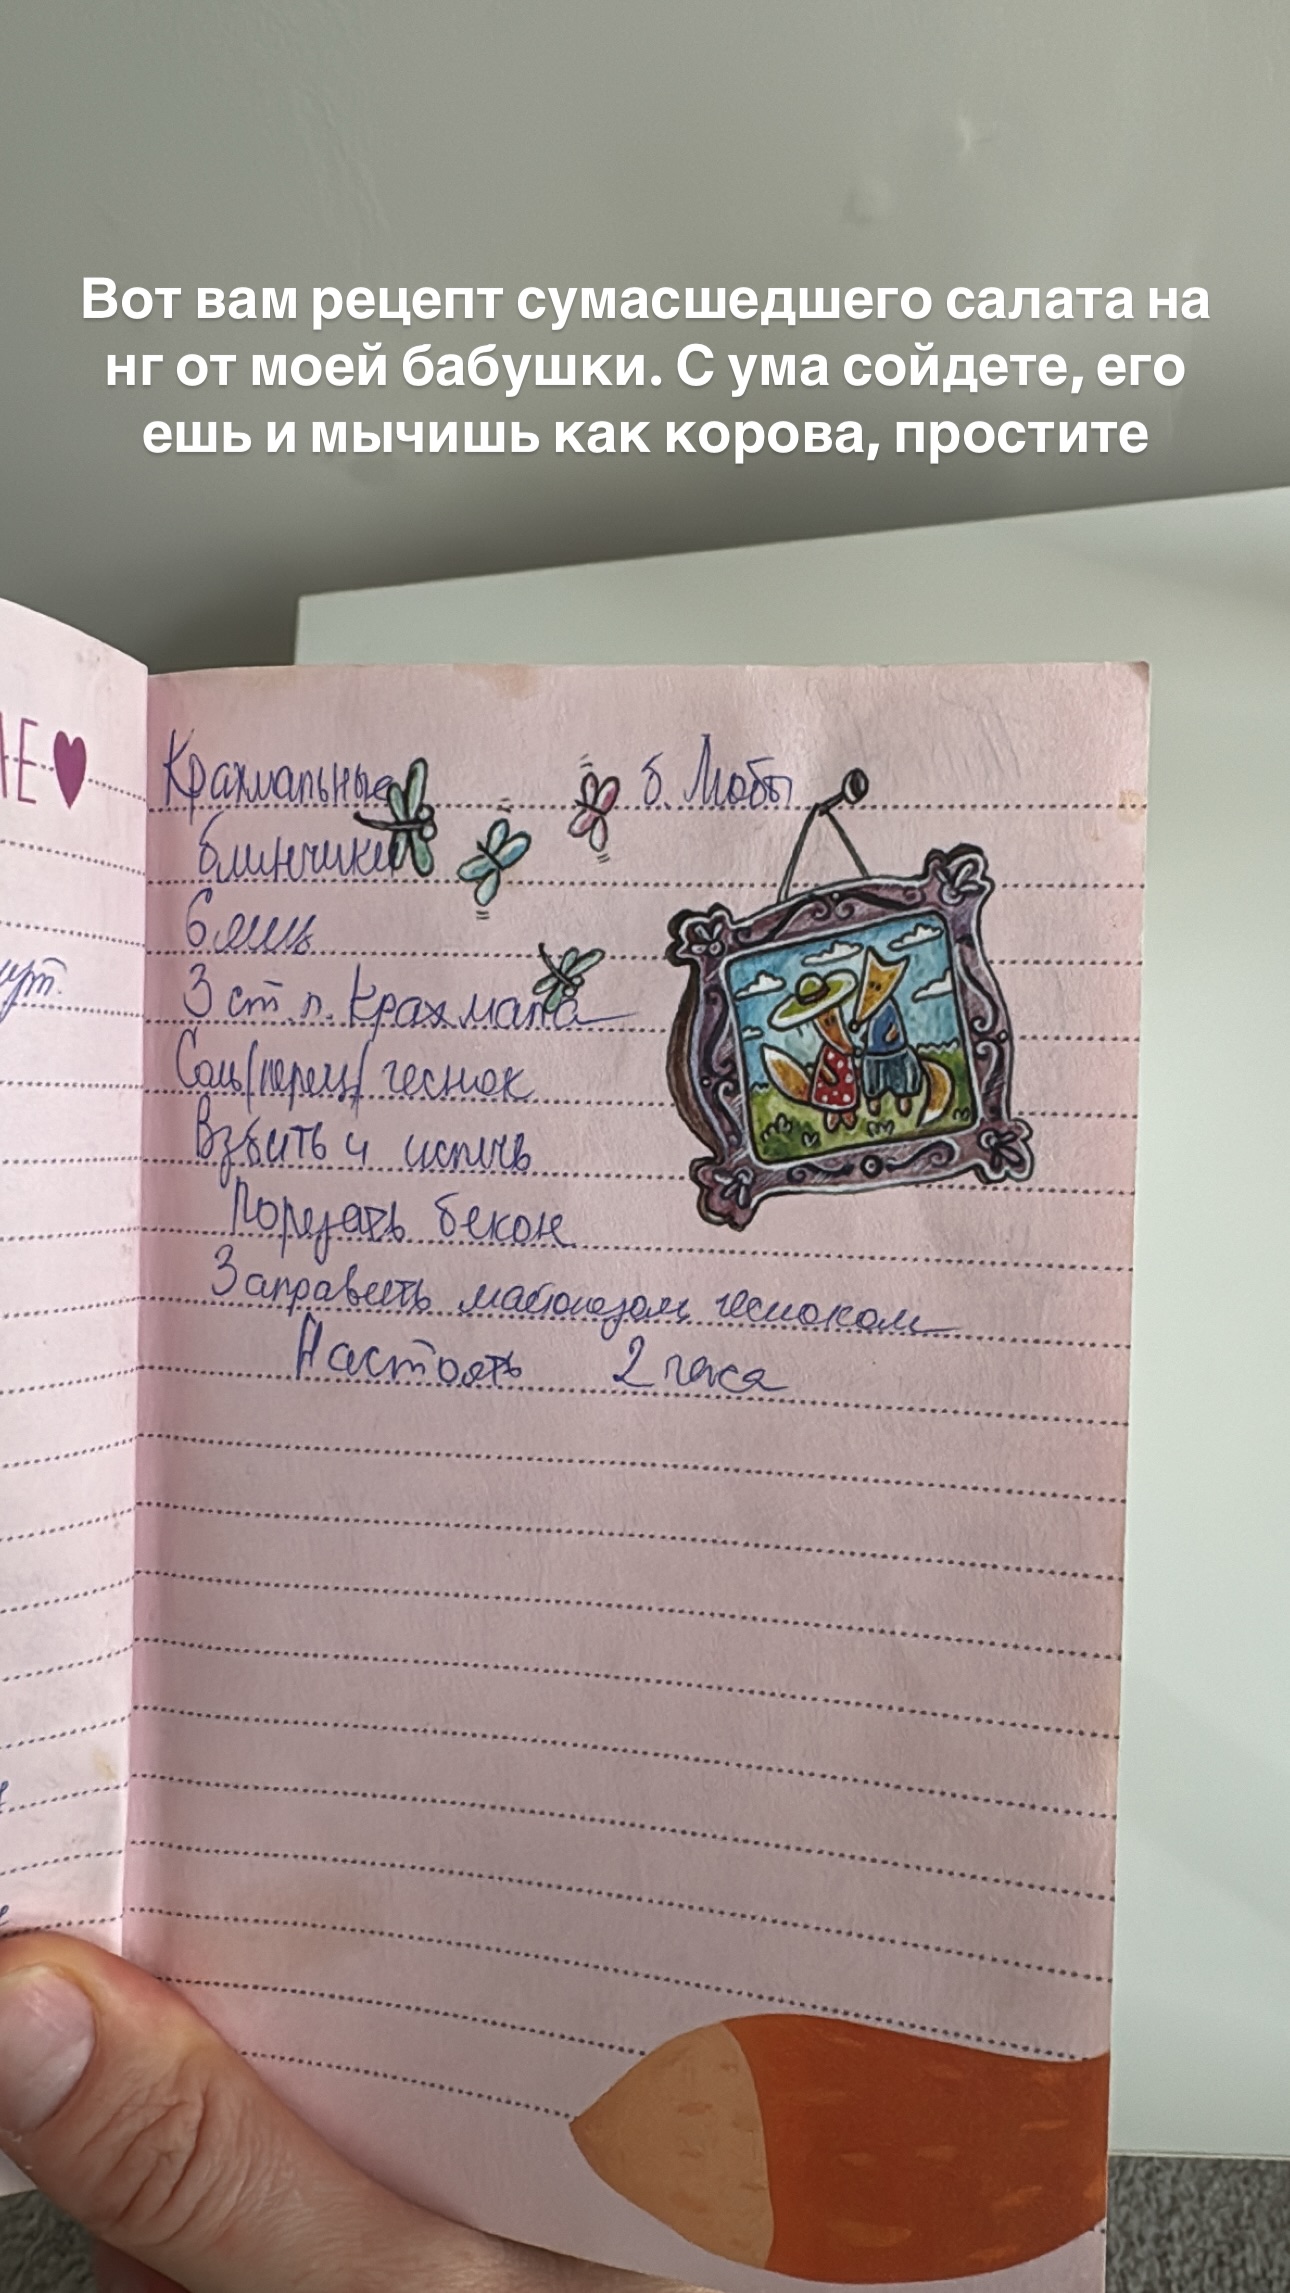 Вот вам рецепт сумасшедшего салата на
нг от моей бабушки. С ума сойдете, его
ешь и мычишь как корова, простите
Крахмальные б. Любы
блинчики
6 яиц
3 ст. л. Крахмала
Соль/перец/чеснок
Взбить и испечь
Порезать бекон
Заправить майонезом чесноком
Настоять 2 часа